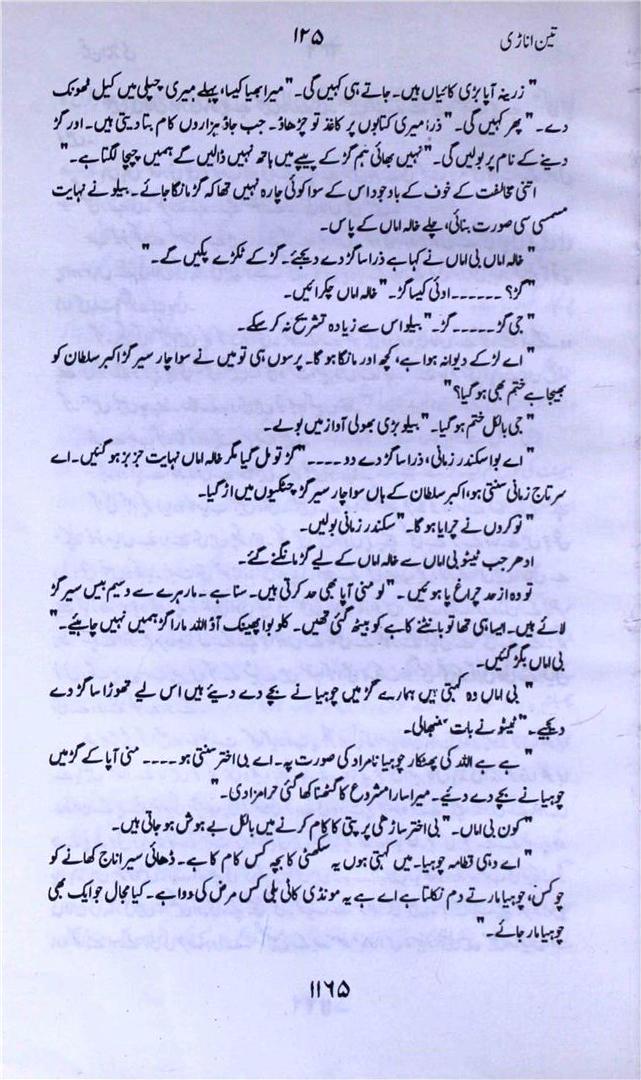 تین اناڑی
۱۲۵
" زرینہ آپا بڑی کائیاں ہیں۔ جاتے ہی کہیں گی۔ "میرا بھیا کیسا، پہلے میری چپلی میں کیل ٹھونک
دے۔" پھر کہیں گی۔ "ذرا میری کتابوں پر کاغذ تو چڑھا دو۔ جب جاؤ ہزاروں کام بتا دیتی ہیں۔ اور گڑ
دینے کے نام پر بولیں گی۔ "نہیں بھائی ہم گڑ کے پیپے میں ہاتھ نہیں ڈالیں گے ہمیں چیچا لگتا ہے۔"
اتنی مخالفت کے خوف کے باوجود اس کے سوا کوئی چارہ نہیں تھا کہ گڑ مانگا جائے۔ ببلو نے نہایت
مسمسی سی صورت بنائی، چلے خالہ اماں کے پاس۔
" خالہ اماں بی اماں نے کہا ہے ذرا سا گڑ دے دیجئے۔ گڑ کے ٹکڑے پکیں گے۔"
"گڑ؟ ۔۔۔۔۔۔ اوئی کیسا گڑ۔" خالہ اماں چکرائیں۔
" جی گڑ ۔۔۔۔۔ گڑ۔" ببلو اس سے زیادہ تشریح نہ کر سکے۔
" اے لڑکے دیوانہ ہوا ہے، کچھ اور مانگا ہو گا۔ پرسوں ہی تو میں نے سوا چار سیر گڑ اکبر سلطان کو
بھیجا ہے ختم بھی ہو گیا؟"
" جی بالکل ختم ہو گیا۔" ببلو بڑی بھولی آواز میں بولے۔
" اے بوا سکندر زمانی، ذرا سا گڑ دے دو ۔۔۔۔" گڑ تو مل گیا مگر خالہ اماں نہایت جزبز ہو گئیں۔ اے
سرتاج زمانی سنتی ہو، اکبر سلطان کے ہاں سوا چار سیر گڑ چٹکیوں میں اڑ گیا۔
" نوکروں نے چرایا ہو گا۔" سکندر زمانی بولیں۔
ادھر جب ٹیٹو بی اماں سے خالہ اماں کے لیے گڑ مانگنے گئے۔
تو وہ از حد چراغ پا ہوئیں۔ " لو منی آپا بھی حد کرتی ہیں۔ سنا ہے۔ مارہرے سے وسیم بیس سیر گڑ
لائے ہیں۔ ایسا ہی تھا تو بانٹنے کاہے کو بیٹھ گئی تھیں۔ کلو بوا پھینک آؤ اللہ مارا گڑ ہمیں نہیں چاہیئے۔"
بی اماں بگڑ گئیں۔
" بی اماں وہ کہتی ہیں ہمارے گڑ میں چوہیا نے بچے دے دیئے ہیں اس لیے تھوڑا سا گڑ دے
دیجیے۔" ٹیٹو نے بات سنبھالی۔
" ہے ہے اللہ کی پھٹکار چوہیا نامراد کی صورت پہ۔ اے بی اختر سنتی ہو ۔۔۔۔ منی آپا کے گڑ میں
چوہیا نے بچے دے دیئے۔ میرا سارا مشروع کا گٹھنا کھا گئی حرامزادی۔"
" کون بی اماں۔" بی اختر ساڑھی پر پتی کا کام کرنے میں بالکل بے ہوش ہو جاتی ہیں۔
" اے وہی قطامہ چوہیا۔ میں کہتی ہوں یہ سکھنی کا بچہ کس کام کا ہے۔ ڈھائی سیر اناج کھانے کو
چوکس، چوہیا مارتے دم نکلتا ہے اے ہے یہ مونڈی کائی بلی کس مرض کی دوا ہے۔ کیا مجال جو ایک بھی
چوہیا مار جائے۔"
۱۱۶۵